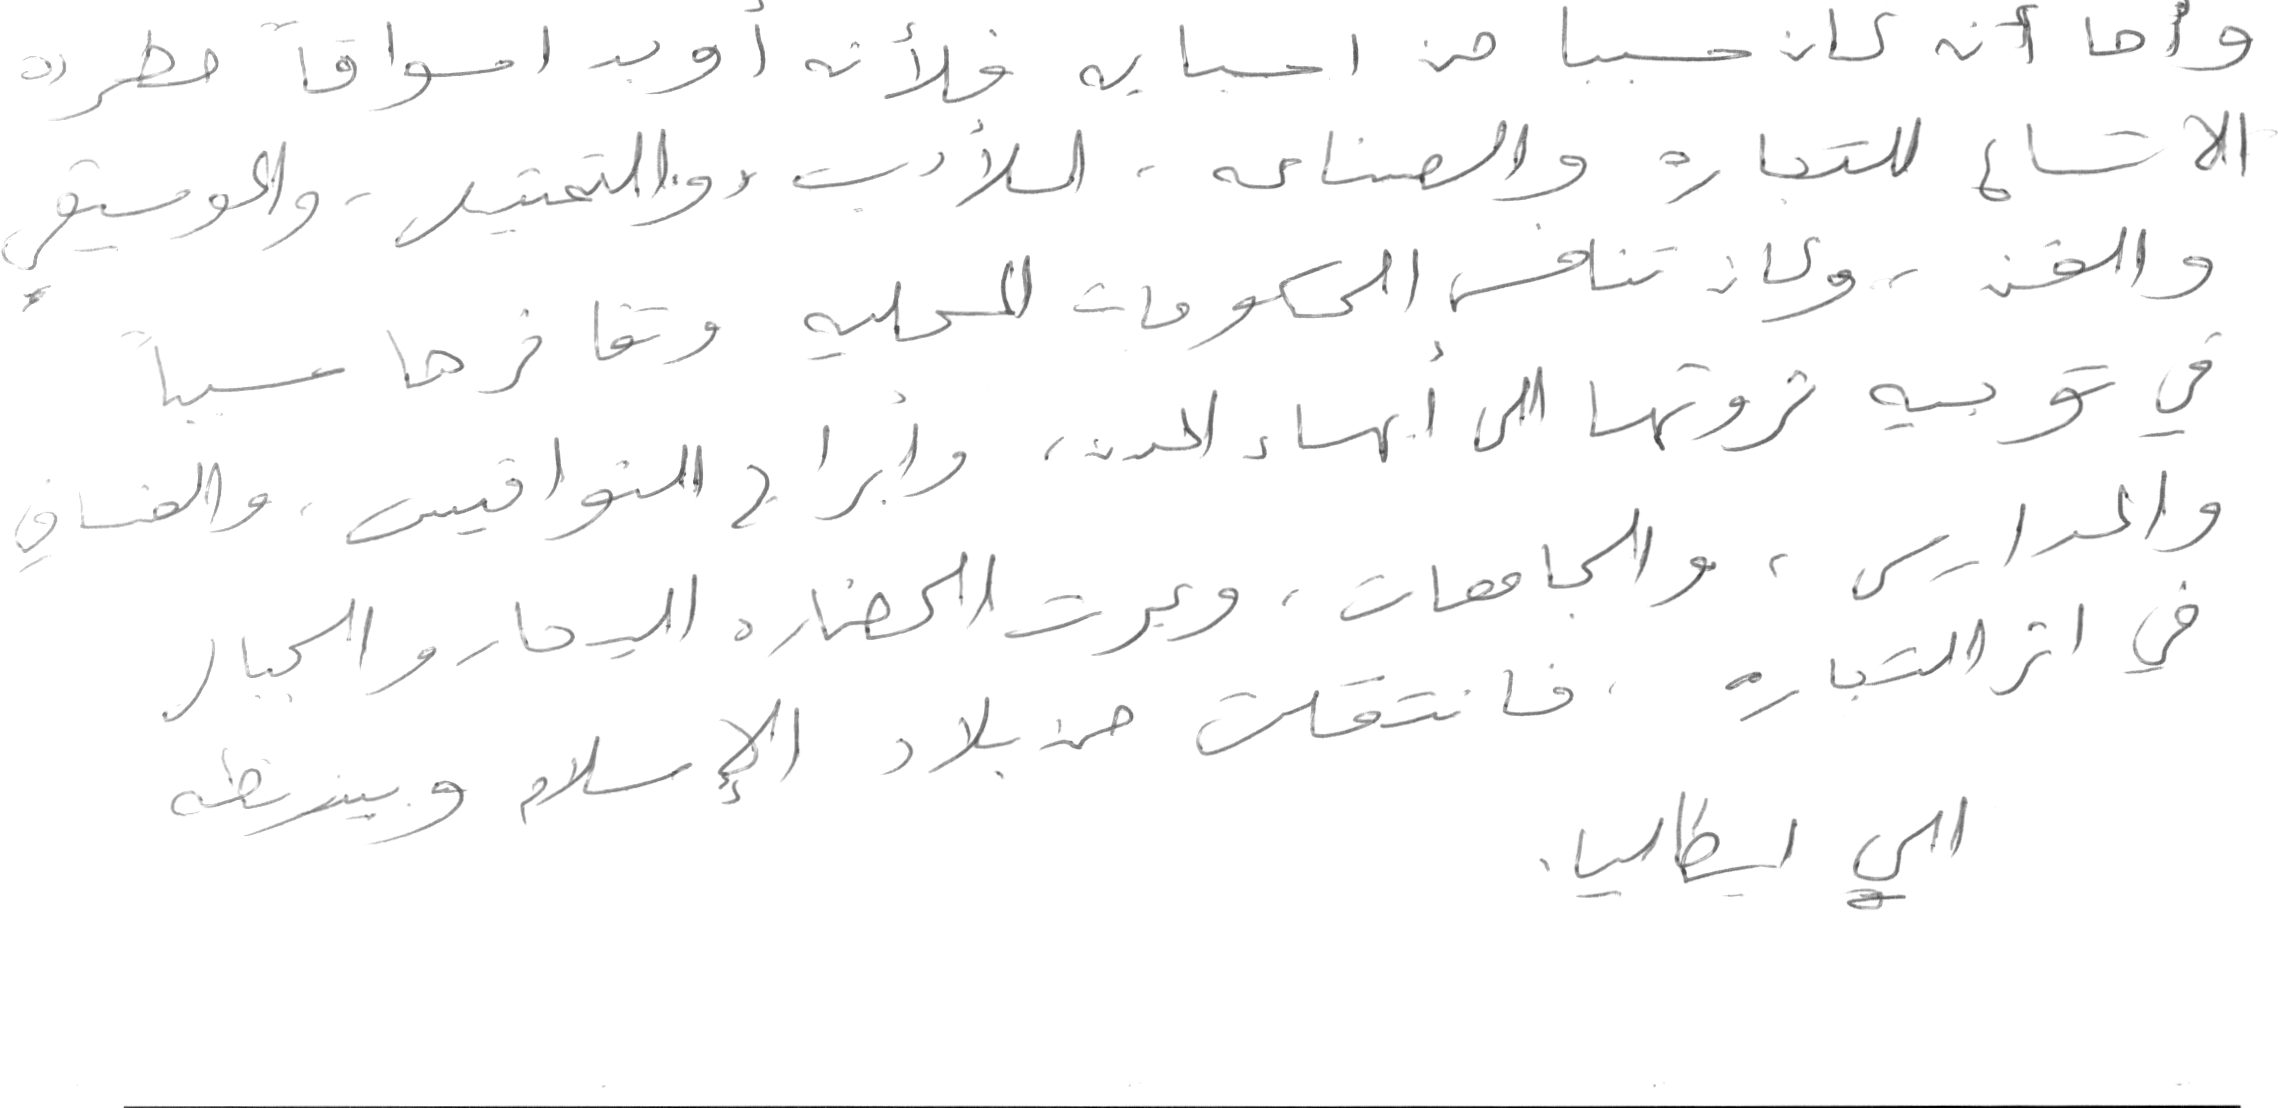 وأما أنه كان سببا من اسبابه فلأنه أوجد اسواقاً مطرده
الاتساع للتجاره والصناعه، للأدب، والتمثيل، والموسيقي
والفن، وكان تنافس الحكومات المحليه وتفاخرها سبباً
في توجيه ثروتها الى أبهاء المدن، وأبراج النواقيس، والفساقي
والمدارس، والجامعات، وعبرت الحضاره البحار والجبال
في اثر التجاره، فانتقلت من بلاد الإسلام وبيزنطه
الي ايطاليا.